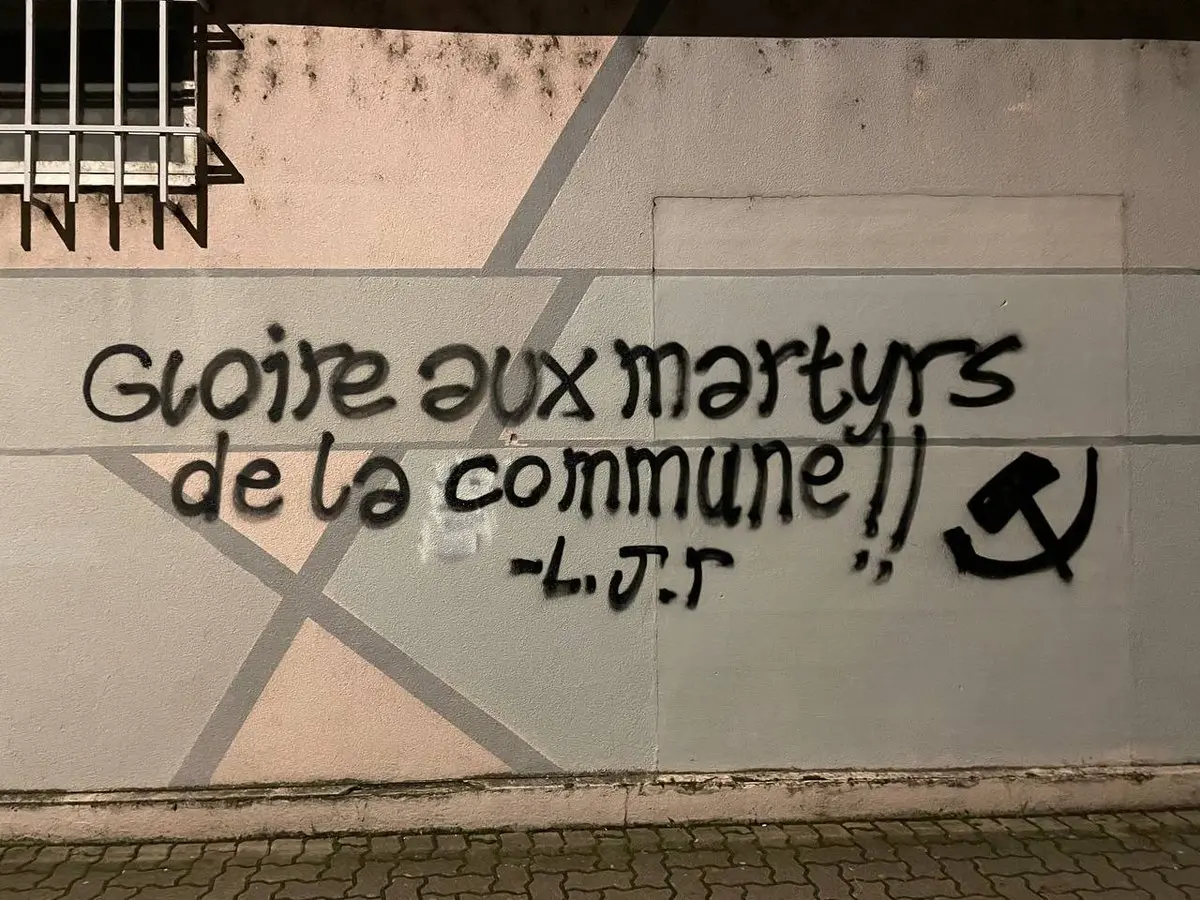 Gloire aux martyrs
de la commune!!
-L.J.r